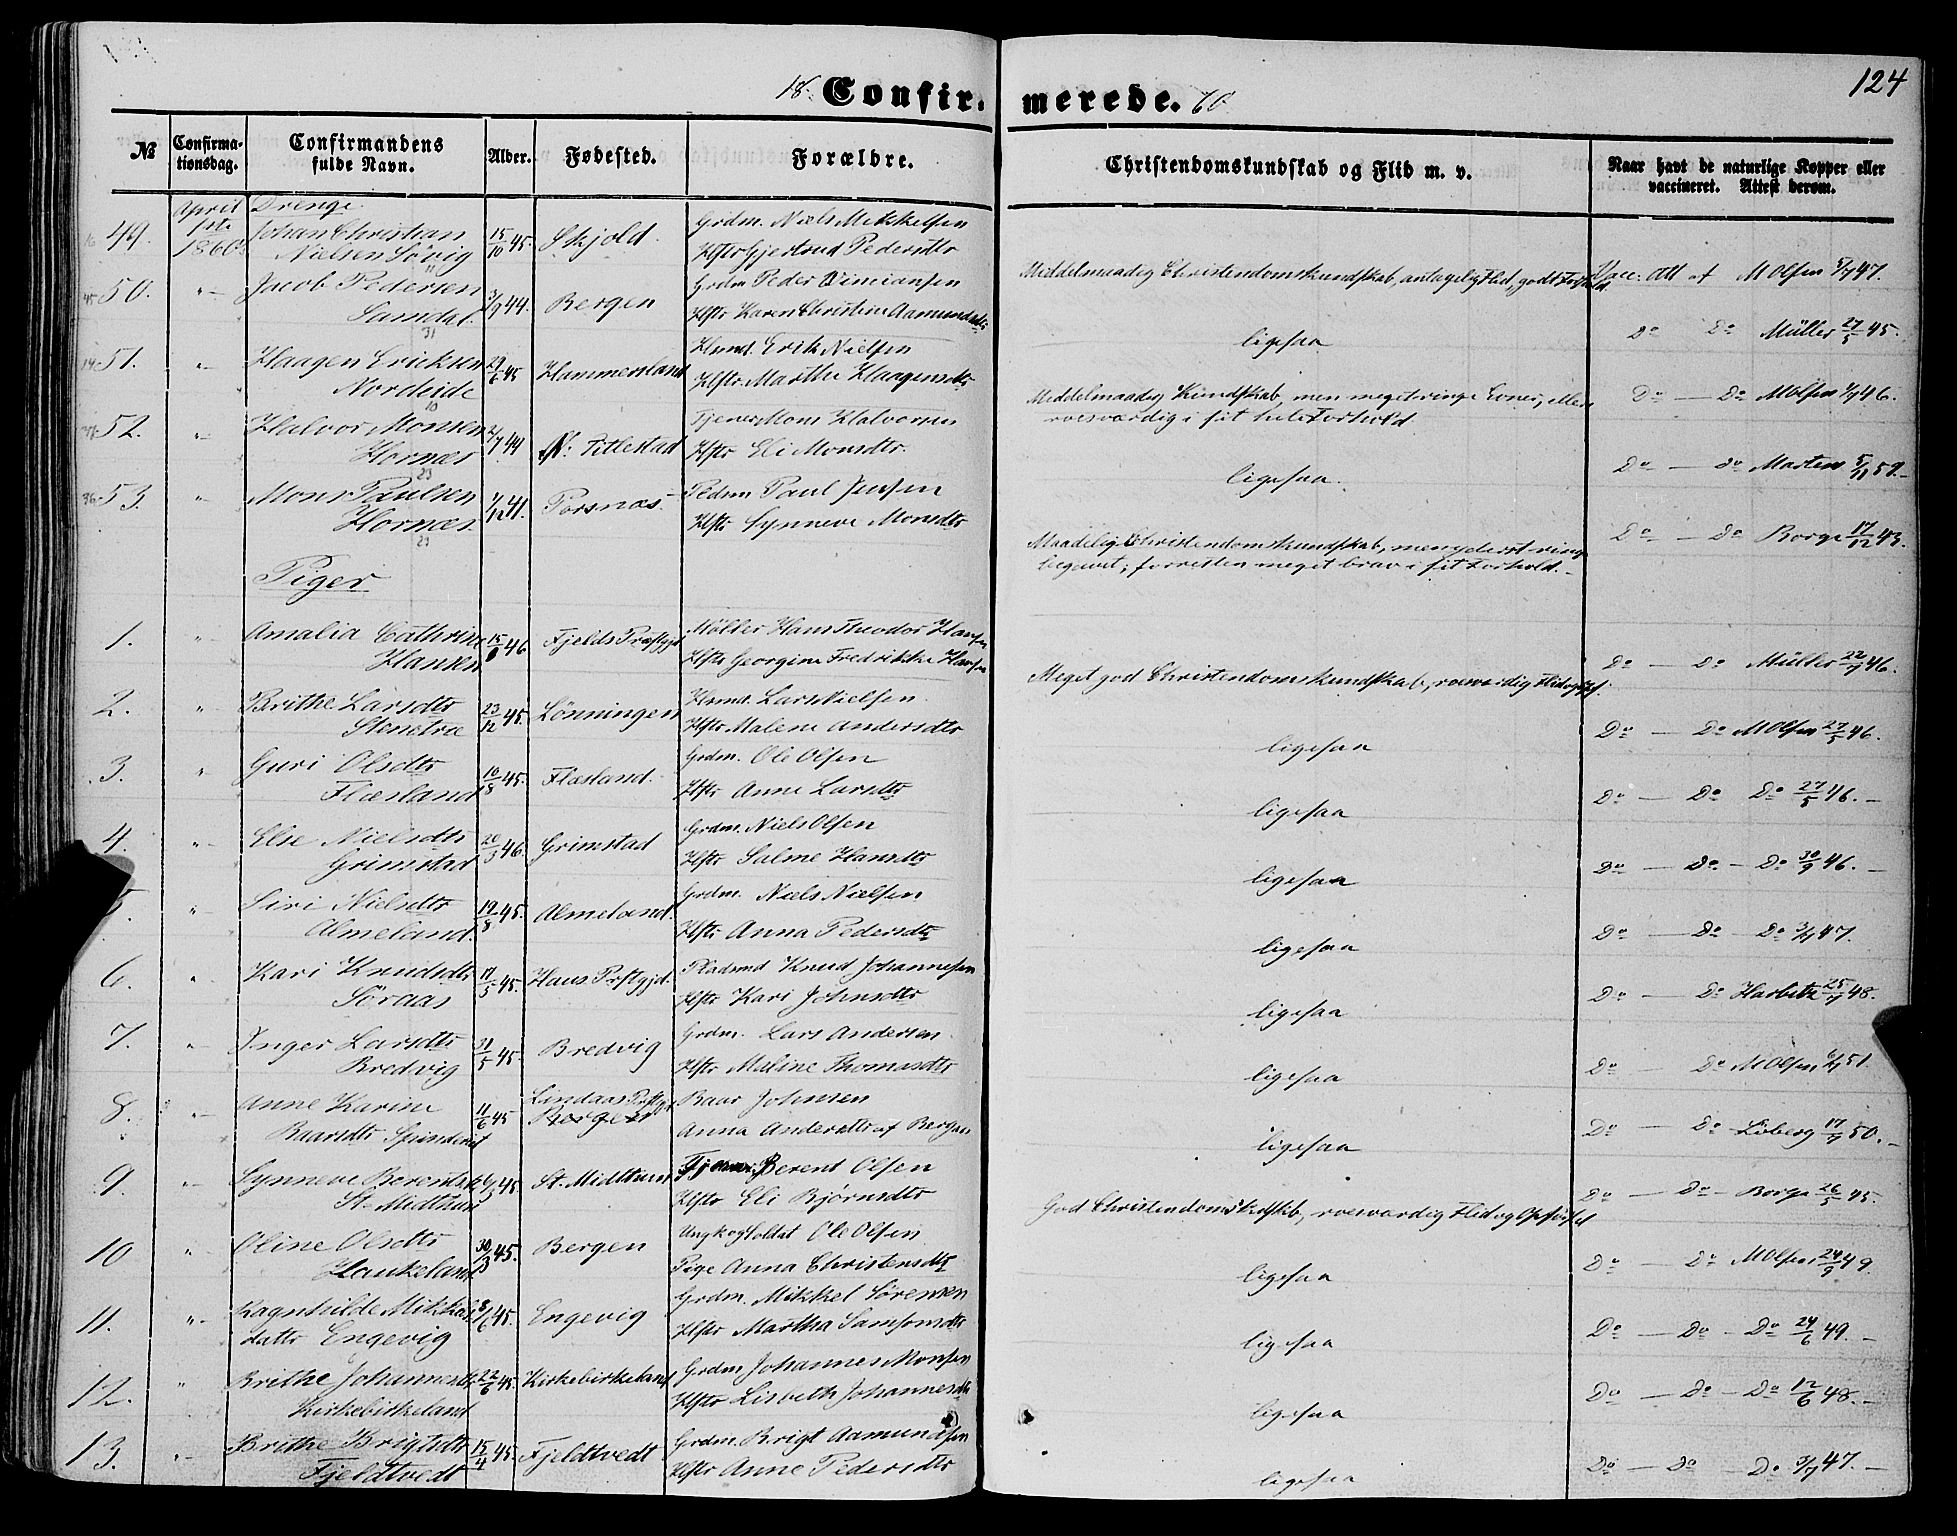 124
18 Confirmerede. 60
№ Confirmationsdag. Confirmandens fulde Navn. Alder. Fødested. Forældre. Christendomskundskab og Flid m. v. Naar havt de naturlige Kopper eller vaccineret. Attest derom.
April 1ste 1860 Drenge
49. Johan Christian Nielsen Sövig 15/10 45 Skjold. Grdm. Niels Mikkelsen Hstr Gjertrud Pedersdtr Middelmaadig Christendomskundskab, antagelig Flid, godt Forhold. Vacc. Att af M Olsen 47.
50. " Jacob Pedersen Samdal 3/9 44. Bergen Grdm Peder Hstr Karen Christine Aamundsdtr ligesaa Do Do Müller 27/5 45.
51. " Haagen Ericksen Nordeide 29/6 45 Hammersland Husmd. Erik Nielsen Hstr Marthe Haagensdtr Middelmaadig Kundskab, men meget ringe Evner, ellers roesværdig i sit hele Forhold Do — Do M Olsen 46.
52. " Halvor Monsen Hornæs 2/7 44 N: Tittestad Tjener Mons Halvorsen Hstr Eli Monsdtr. ligesaa. Do — Do Martens 5/11 57.
53. " Mons Paulsen Hornæs 1/12 41. Porsnæs Pedrm Paul Jensen Hstr Synneve Monsdtr Maadelig Christendomskundskab, men yderst ringe begavet; forresten meget brav i sit Forhold. Do — Do Borge 17/12 43.
Piger
1. " Amalia Cathrine Hansen 15/ 46 Fjelds Præstgjd Møller Hans Theodor Hansen Hstr Georgine Fredrikke Hansen Meget god Christendomskundskab, roesværdig Flid og Opf. Do — Do Müller 22/7 46.
2. " Brithe Larsdtr Stenetræ 23/12 45. Lönningen Husmd. Lars Nielsen. Hstr Malene Andersdtr ligesaa Do — Do M Olsen 27/5 46.
3. " Guri Olsdtr Flæsland 10/8 45. Flæsland. Grdm. Ole Olsen Hstr Anne Larsdtr ligesaa Do — Do Do 27/5 46.
4. " Else Nielsdtr Grimstad 20/3 46. Grimstad Grdm. Niels Olsen Hstr Salme Hansdtr ligesaa Do — Do — Do 30/9 46.
5. " Siri Nielsdtr Almeland. 19/8 45. Almeland. Grdm. Niels Nielsen Hstr Anna Pedersdtr ligesaa Do — Do — Do 3/7 47.
6. " Kari Knudsdtr Söraas 11/5 45. Haus Præstgjd. Pladsmd Knud Johannesen Hstr Kari Johnsdtr ligesaa Do — Do Harbitz 25/7 48.
7. " Inger Larsdtr Bredvig 31/5 45 Bredvig Grdm. Lars Andersen. Hstr Maline Thomasdtr ligesaa Do — Do M Olsen 51.
8. " Anne Karine Baarsdtr Spinderiet 11/6 45 Lindaas Præstgjd Bergen Baar Johnsen Anna Andersdtr af Bergen ligesaa Do — Do Löberg 17/9 50.
9. " Synneve Berentsd. St. Midthun 26/3 45 St. Midttun Tjener Berent Olsen Hstr Eli Bjørnsdtr God Christendomskundskab, roesværdig Flid og Opførsel Do — Do — Borge 26/5 45.
10 " Oline Olsdtr Haukeland 30/3 45. Bergen Ungk og Soldat Ole Olsen Pige Anna Christensdtr ligesaa Do — Do M Olsen 24/9 49.
11. " Ragnhilde Mikkelsdattr Engevig 8/6 45. Engevig Grdm. Mikkel Sørensen Hstr Martha Samsonsdtr ligesaa Do — Do — Do 24/6 49.
12. " Brithe Johannesdtr Kirkebirkeland 22/6 45. Kirkebirkeland Grdm Johannes Monsen Hstr Lisbeth Johannesdtr ligesaa Do — Do — Do 12/6 48.
13. " Brithe Brigtsdtr Fjeldtvedt 15/4 45. Fjeldtvedt Grdm. Brigt Aamundsen Hstr Anne Pedersdtr ligesaa Do — Do — Do 3/7 47.